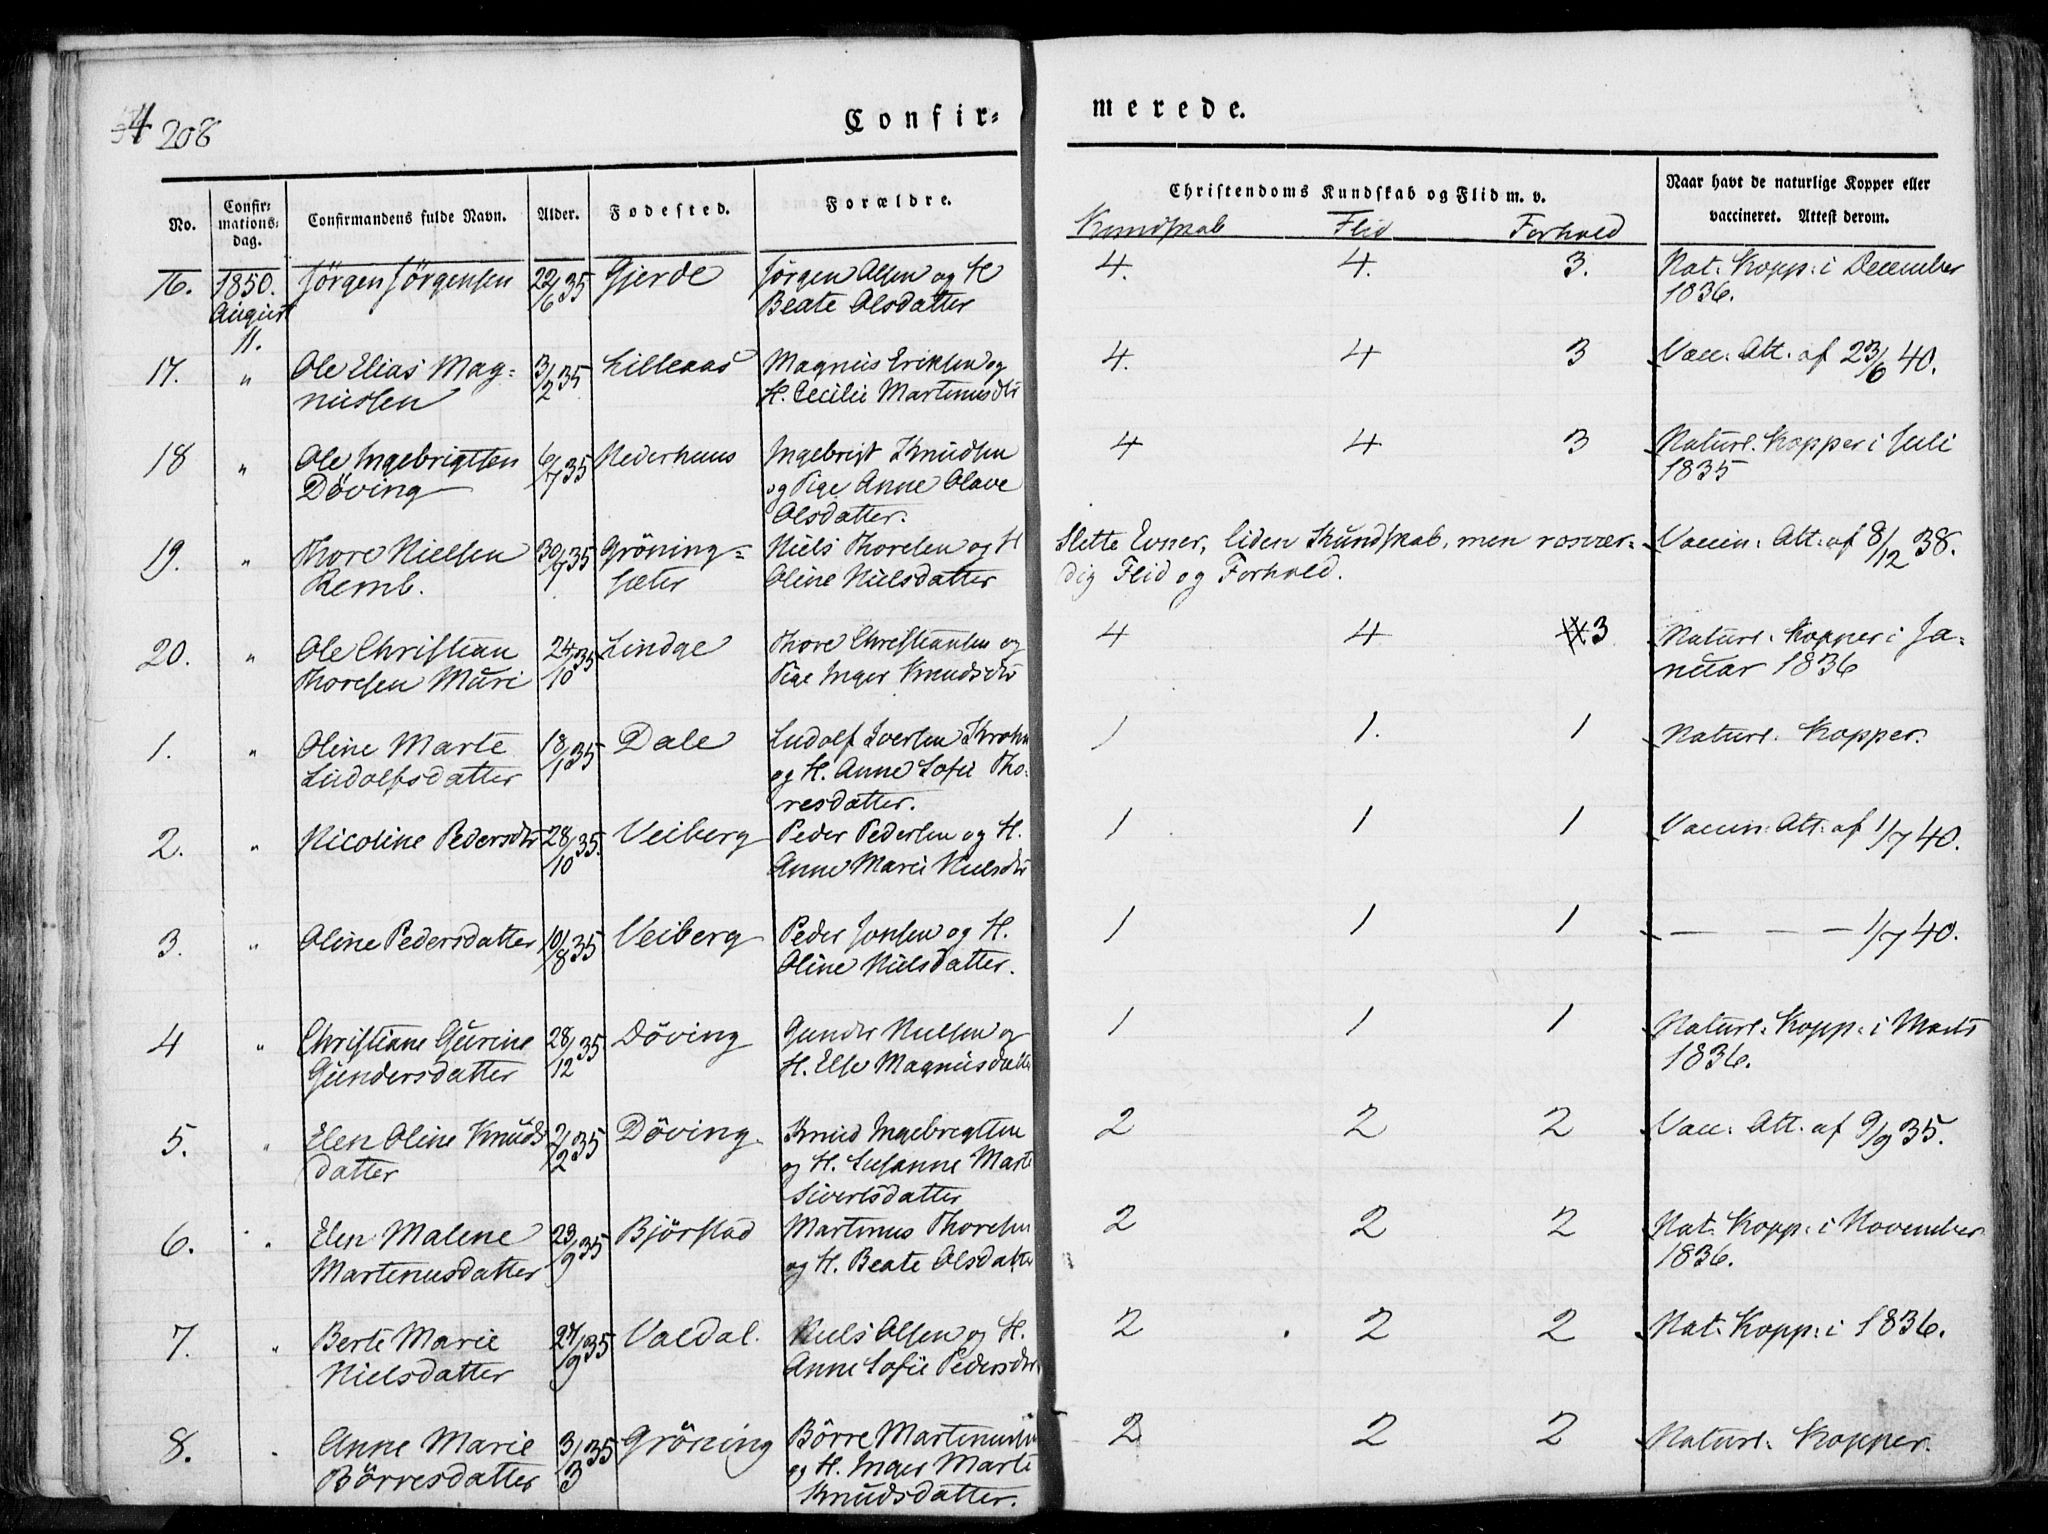 208
Confir- merede.
No. Confir- mations- dag. Confirmandens fulde Navn. Alder. Fødested. Forældre. Christendoms Kundskab og Flid m. v. Naar havt de naturlige Kopper eller vaccineret. Attest derom.
Kundskab Flid Forhold
16. 1850. Jørgen Jørgensen 22/6 35 Gjerde Jørgen Olsen og H 4. 4. 3. Nat. Kopp: i December
August Beate Olsdatter 1836.
11.
17. " Ole Elias Mag= 3/2 35 Lilleaas Magnus Eriksen og 4. 4 3 Vacc. Att. af 23/6 40.
nussen H. Cecilie Martinusdtr
18 " Ole Ingebrigtsen 6/7 35 Nederhuus Ingebrigt Knudsen 4 4 3 Naturl. Kopper i Juli
Döving og Pige Anne Olave 1835
Olsdatter.
19. " Thore Nielsen 30/7 35 Gröning= Niels Thoresen og H Slette Evner, liden Kundskab, men rosvær- Vaccin. Att. af 8/12 38.
Remb. sæter Oline Nielsdatter dig Flid og Forhold.
20. " Ole Christian 24/10 35 Lindge Thore Christiansen og 4 4 3 Naturl. Kopper i Ja-
Thoresen Muri Pige Inger Knudsdtr nuar 1836
1. " Oline Marte 18/1 35 Dale Ludolf Iversen Krohn 1 1. 1 Naturl. Kopper.
Ludolfsdatter og H. Anne Sofie Tho-
resdatter.
2. " Nicoline Pedersdtr 28/10 35. Veiberg Peder Pedersen og H. 1 1 1 Vaccin. Att. af 1/7 40.
Anne Marie Nielsdtr
3. " Oline Pedersdatter 10/8 35 Veiberg Peder Jonsen og H. 1 1 1 — — — 1/7 40.
Oline Nielsdatter.
4 " Christiane Gurine 28/12 35 Döving Gunder Nielsen og 1 1 1 Naturl. Kopp: i Marts
Gundersdatter H. Else Magnusdatter 1836.
5. " Elen Oline Knuds 2/2 35 Döving. Knud Ingebrigtsen 2 2 2 Vacc. Att. af 9/9 35.
datter og H. Susanne Marte
Sivertsdatter
6. " Elen Malene 23/9 35 Bjørstad Martinus Thoresen 2 2 2 Nat. Kopp: i November
Martinusdatter og H. Beate Olsdatter 1836.
7. " Berte Marie 27/9 35 Valdal. Niels Olsen og H. 2 2 2 Nat. Kopp: i 1836.
Nielsdatter Anne Sofie Pedersdtr
8. " Anne Marie 3/3 35 Gröning Börre Martinussen 2 2 2 Naturl. Kopper.
Börresdatter og H. Inger Marte
Knudsdatter.